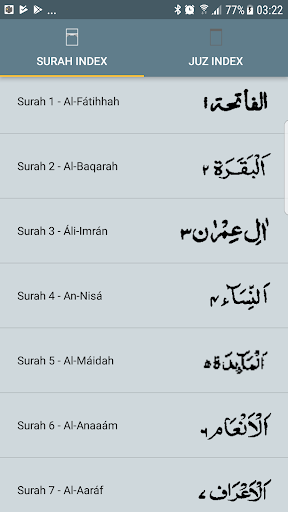 77% 03:22
SURAH INDEX
JUZ INDEX
Surah 1 - Al-Fátihhah
الفاتحة ١
Surah 2 - Al-Baqarah
اَلْبَقَرَة ٢
Surah 3 - Áli-Imrán
اٰلِ عِمْرٰن ٣
Surah 4 - An-Nisá
اَلنِّسَآء ۴
Surah 5 - Al-Máidah
اَلْمَآىِٕدَة ۵
Surah 6 - Al-Anaaám
اَلْاَنْعَام ٦
Surah 7 - Al-Aaráf
اَلْاَعْرَاف ٧